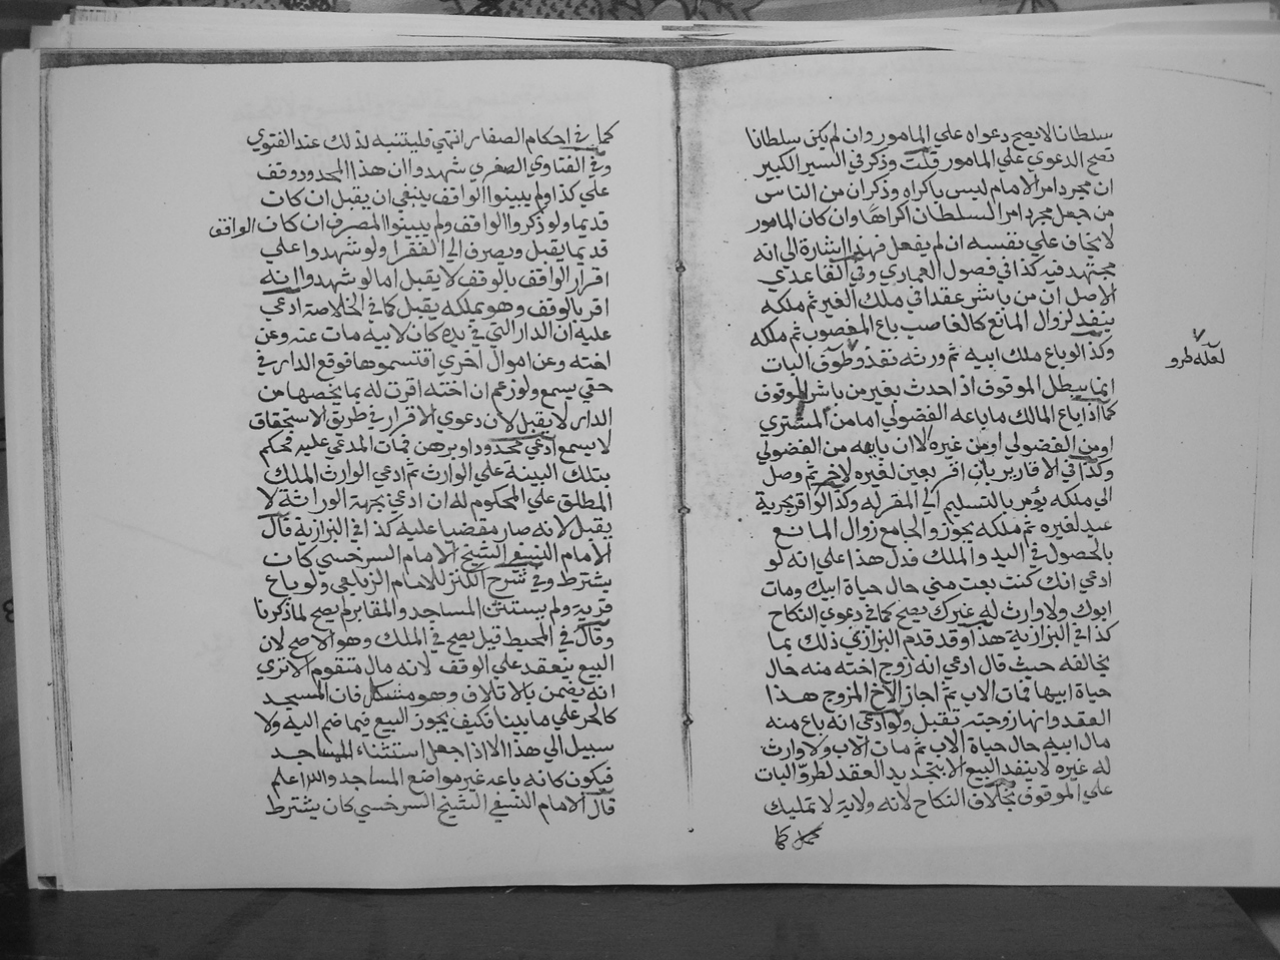 سلطانا لا يصح دعواه علي المامور وان لم يكن سلطانا
تصح الدعوي علي المامور قلت وذكر في السير الكبير
ان مجرد امر الامام ليس باكراه وذكر ان من الناس
من جعل مجرد امر السلطان اكراها وان كان المامور
لا يخاف علي نفسه ان لم يفعل فهذا اشارة الي انه
مجتهد فيه كذا في فصول العمادي وفي القاعدي
الاصل ان من باشر عقدا في ملك الغير ثم ملكه
ينفذ لزوال المانع كالغاصب باع المغصوب ثم ملكه
وكذا لو باع ملك ابيه ثم ورثه نفذ وطوق البات
لعله طرو
انما يبطل الموقوف اذا حدث بغير من باشر الموقوف
كما اذا باع المالك ما باعه الفضولي اما من المشتري
او من الفضولي او من غيره لا ان بايعه من الفضولي
وكذا في الاقارير بان اقر بعين لغيره لاخر ثم وصل
الي ملكه يؤمر بالتسليم الي المقر له وكذا لو اقر بحرية
عبد لغيره ثم ملكه يجوز والجامع زوال المانع
بالحصول في اليد والملك فدل هذا علي انه لو
ادعي انك كنت بعت مني حال حياة ابيك ومات
ابوك ولا وارث له غيرك يصح كما في دعوي النكاح
كذا في البزازية هذا وقد قدم البزازي ذلك بما
يخالفه حيث قال ادعي انه زوج اخته منه حال
حياة ابيها فمات الاب ثم اجاز الاخ المزوج هذا
العقد وانها زوجته تقبل ولو ادعي انه باع منه
مال ابيه حال حياة الاب ثم مات الاب ولا وارث
له غيره لا ينفد البيع الا بتجديد العقد لطرو البات
علي الموقوف بخلاف النكاح لانه ولاية لا تمليك
كما
كما في احكام الصفار انتهي فليتنبه لذلك عند الفتوي
وفي الفتاوي الصغري شهدوا ان هذا المحدود وقف
علي كذا ولم يبينوا الواقف ينبغي ان يقبل ان كان
قديما ولو ذكروا الواقف ولم يبينوا المصرف ان كان الواقف
قديما يقبل ويصرف الي الفقرا ولو شهدوا علي
اقرار الواقف بالوقف لا يقبل اما لو شهدوا انه
اقر بالوقف وهو يملكه يقبل كما في الخلاصة ادعي
عليه ان الدار التي في يده كان لابيه مات عنه وعن
اخته وعن اموال اخري اقتسموها فوقع الدار في
حقي يسمع ولو زعم ان اخته اقرت له بما يخصها من
الدار لا يقبل لان دعوي الاقرار في طريق الاستحقاق
لا يسمع ادعي محدودا وبرهن فمات المدعي عليه فحكم
بتلك البينة علي الوارث ثم ادعي الوارث الملك
المطلق علي المحكوم له ان ادعي بجهة الوراثة لا
يقبل لانه صار مقضيا عليه كذا في البزازية قال
الامام النسفي الشيخ الامام السرخسي كان
يشترط وفي شرح الكنز للامام الزيلعي ولو باع
قرية ولم يستثن المساجد والمقابر لم يصح لما ذكرنا
وقال في المحيط قيل يصح في الملك وهو الاصح لان
البيع ينعقد علي الوقف لانه مال متقوم الا تري
انه يضمن بالاتلاف وهو مشكل فان المسجد
كالحر علي ما بينا فكيف يجوز البيع فيما ضم اليه ولا
سبيل الي هذا الا اذا جعل استثناء المساجد
فيكون كانه باعه غير مواضع المساجد والله اعلم
قال الامام النسفي الشيخ السرخسي كان يشترط